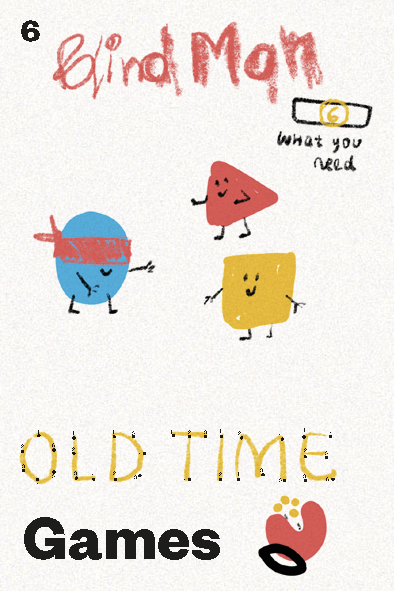 6
Blind Man
6
what you
need
OLD TIME
Games